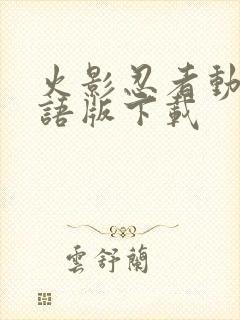 火影忍者動
語版下載
雲舒蘭